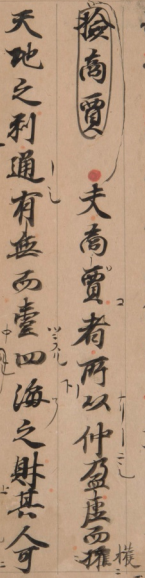 撿商賈 夫商賈者所以仲盈虚而獲
天地之利通有無而壹四海之財其人可